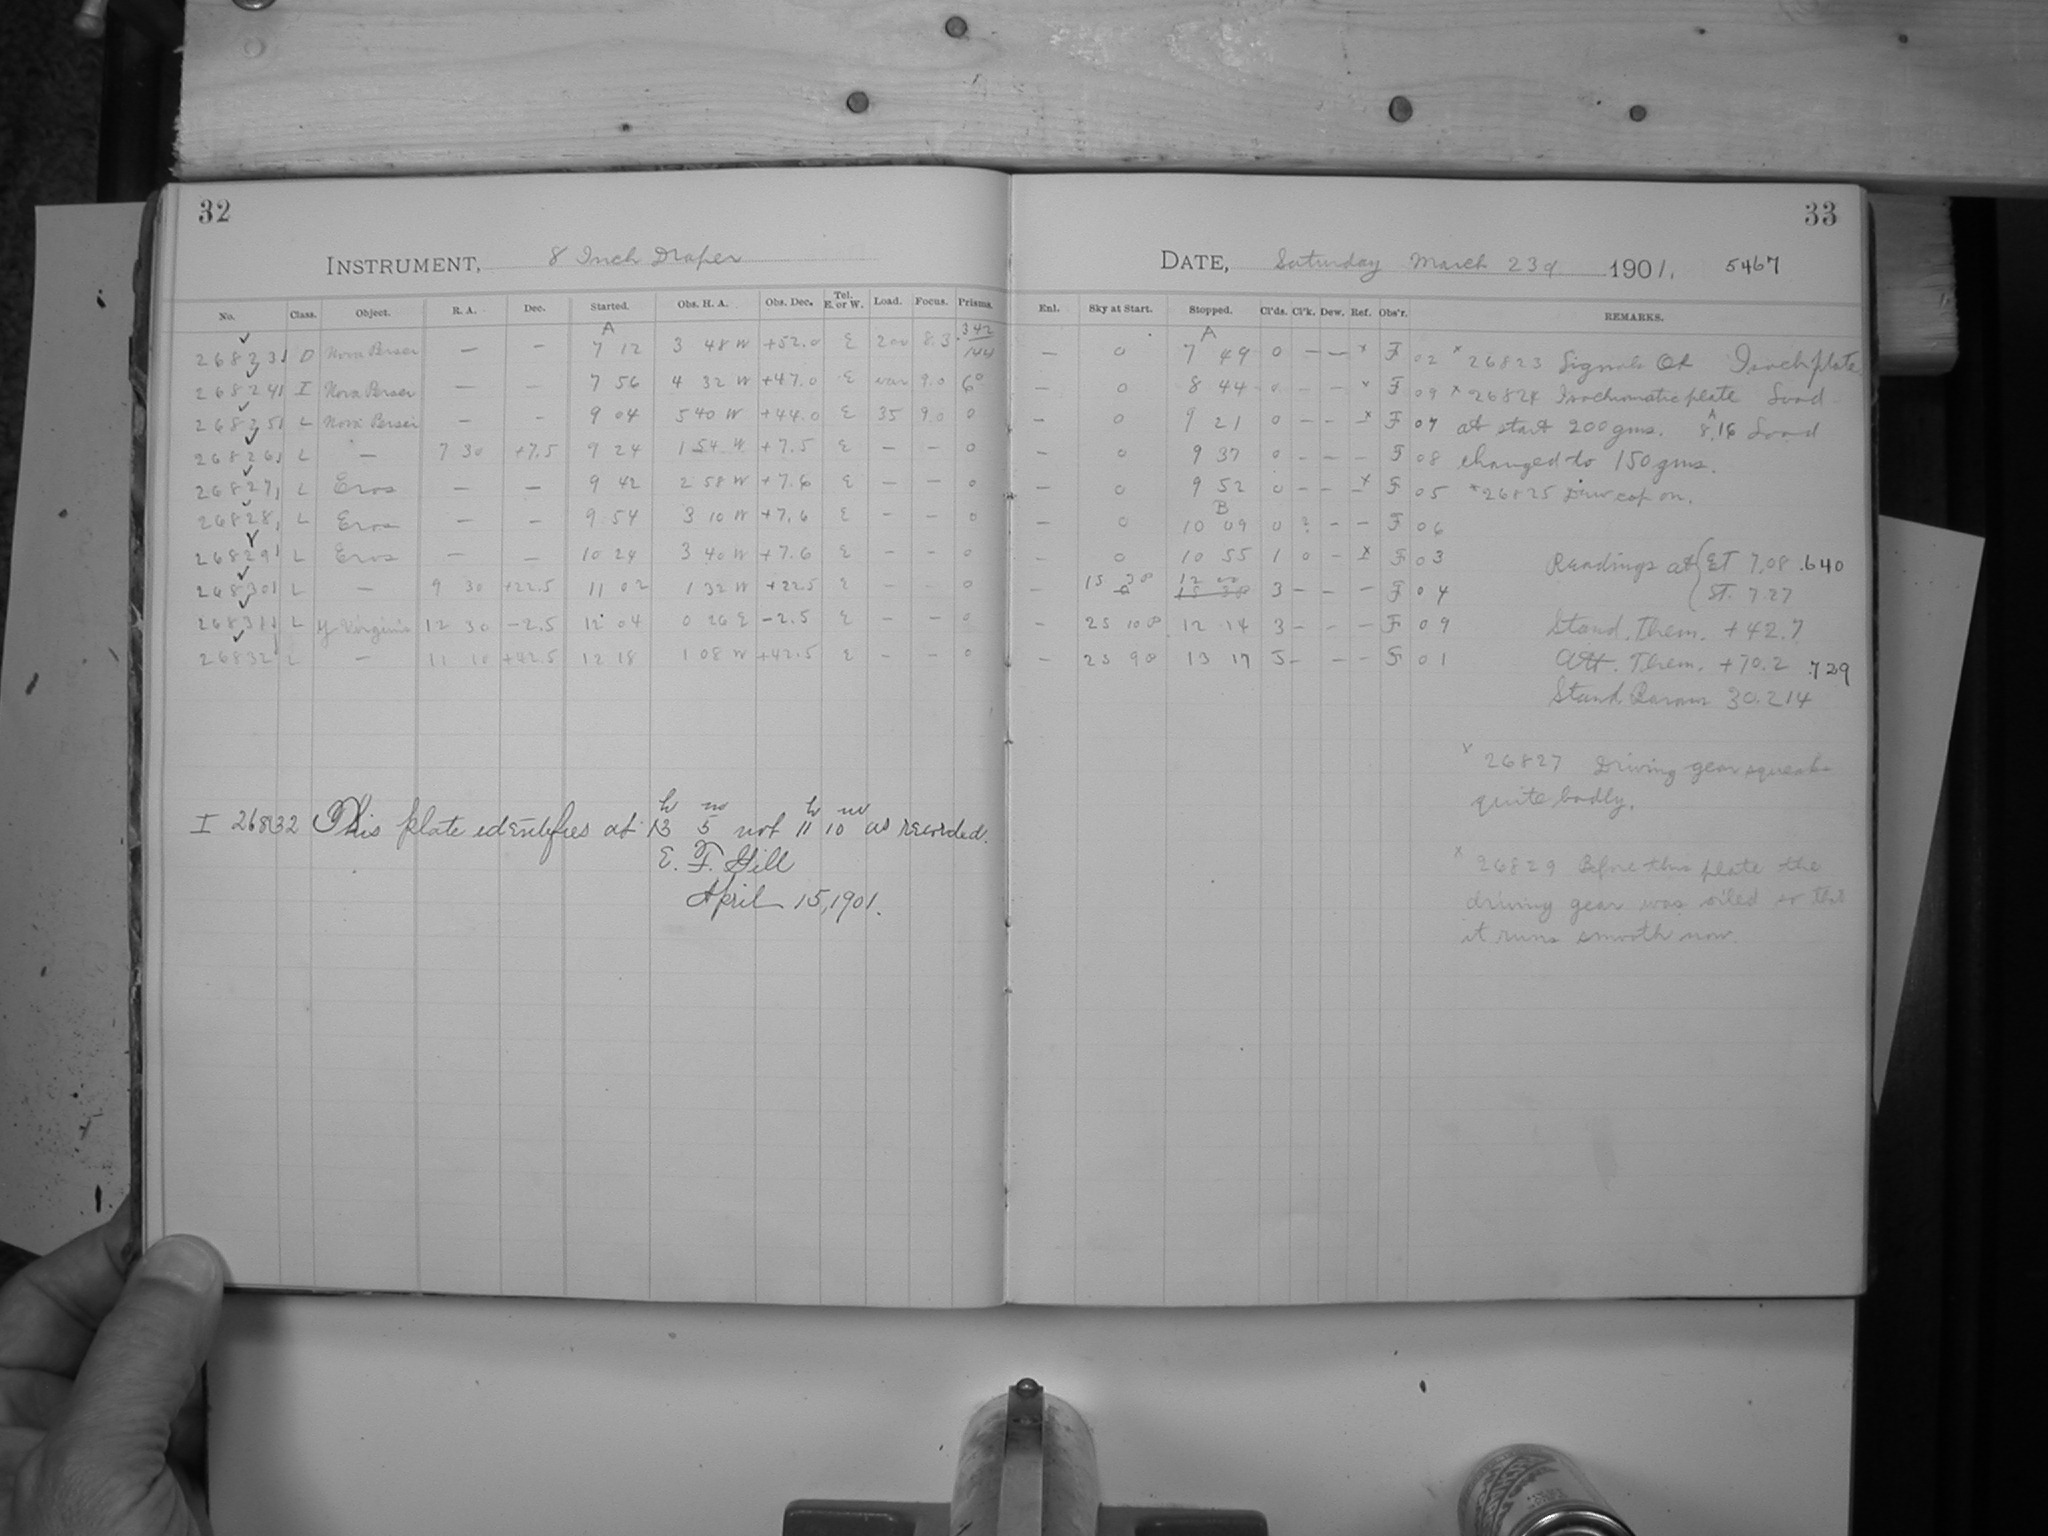 32
INSTRUMENT, 8 Inch Draper
No. Class. Object. R. A. Dec. Started. Obs. H. A. Obs. Dec. Tel. E. or W. Load. Focus. Prisms.
26823 D Nova Persei — — A 7 12 3 48 W +52.0 E 200 8.3 342 144
26824 I Nova Persei — — 7 56 4 32 W +47.0 E var 9.0 6°
26825 L Nova Persei — — 9 04 5 40 W +44.0 E 35 9.0 0
26826 L — 7 30 +7.5 9 24 1 54 W +7.5 E — — 0
26827 L Eros — — 9 42 2 58 W +7.6 E — — 0
26828 L Eros — — 9 54 3 10 W +7.6 E — — 0
26829 L Eros — — 10 24 3 40 W +7.6 E — — 0
26830 L — 9 30 +22.5 11 02 1 32 W +22.5 E — — 0
26831 L Virginis 12 30 −2.5 12 04 0 26 E −2.5 E — — 0
26832 L — 11 10 +42.5 12 18 1 08 W +42.5 E — — 0
I 26832 This plate identifies at 13h 5m not 11h 10m as recorded.
E. F. Gill
April 15, 1901.
33
DATE, Saturday March 23d 1901. 5467
Enl. Sky at Start. Stopped. Cl'ds. Cl'k. Dew. Ref. Obs'r. REMARKS.
— 0 A 7 49 0 — — x F 02 x 26823 Signals OK Isoch plate
— 0 8 44 0 — — x F 09 x 26824 Isochromatic plate Load
— 0 9 21 0 — — x F 07 at start 200 gms. A 8.16 Load
— 0 9 37 0 — — — F 08 changed to 150 gms.
— 0 9 52 0 — — x F 05 x 26825 Dew cap on.
— 0 B 10 09 0 ? — — F 06
— 0 10 55 1 0 — x F 03 Readings at ET 7.08 .640
— 15 30 0 12 00 3 — — — F 04 ST. 7.27
— 25 100 12 14 3 — — — F 09 Stand. Them. +42.7
— 25 90 13 17 5 — — — F 01 Att. Them. +70.2 .729
Stand Barom 30.214
x 26827 Driving gear squeaks
quite badly.
x 26829 Before this plate the
driving gear was oiled so that
it runs smooth now.